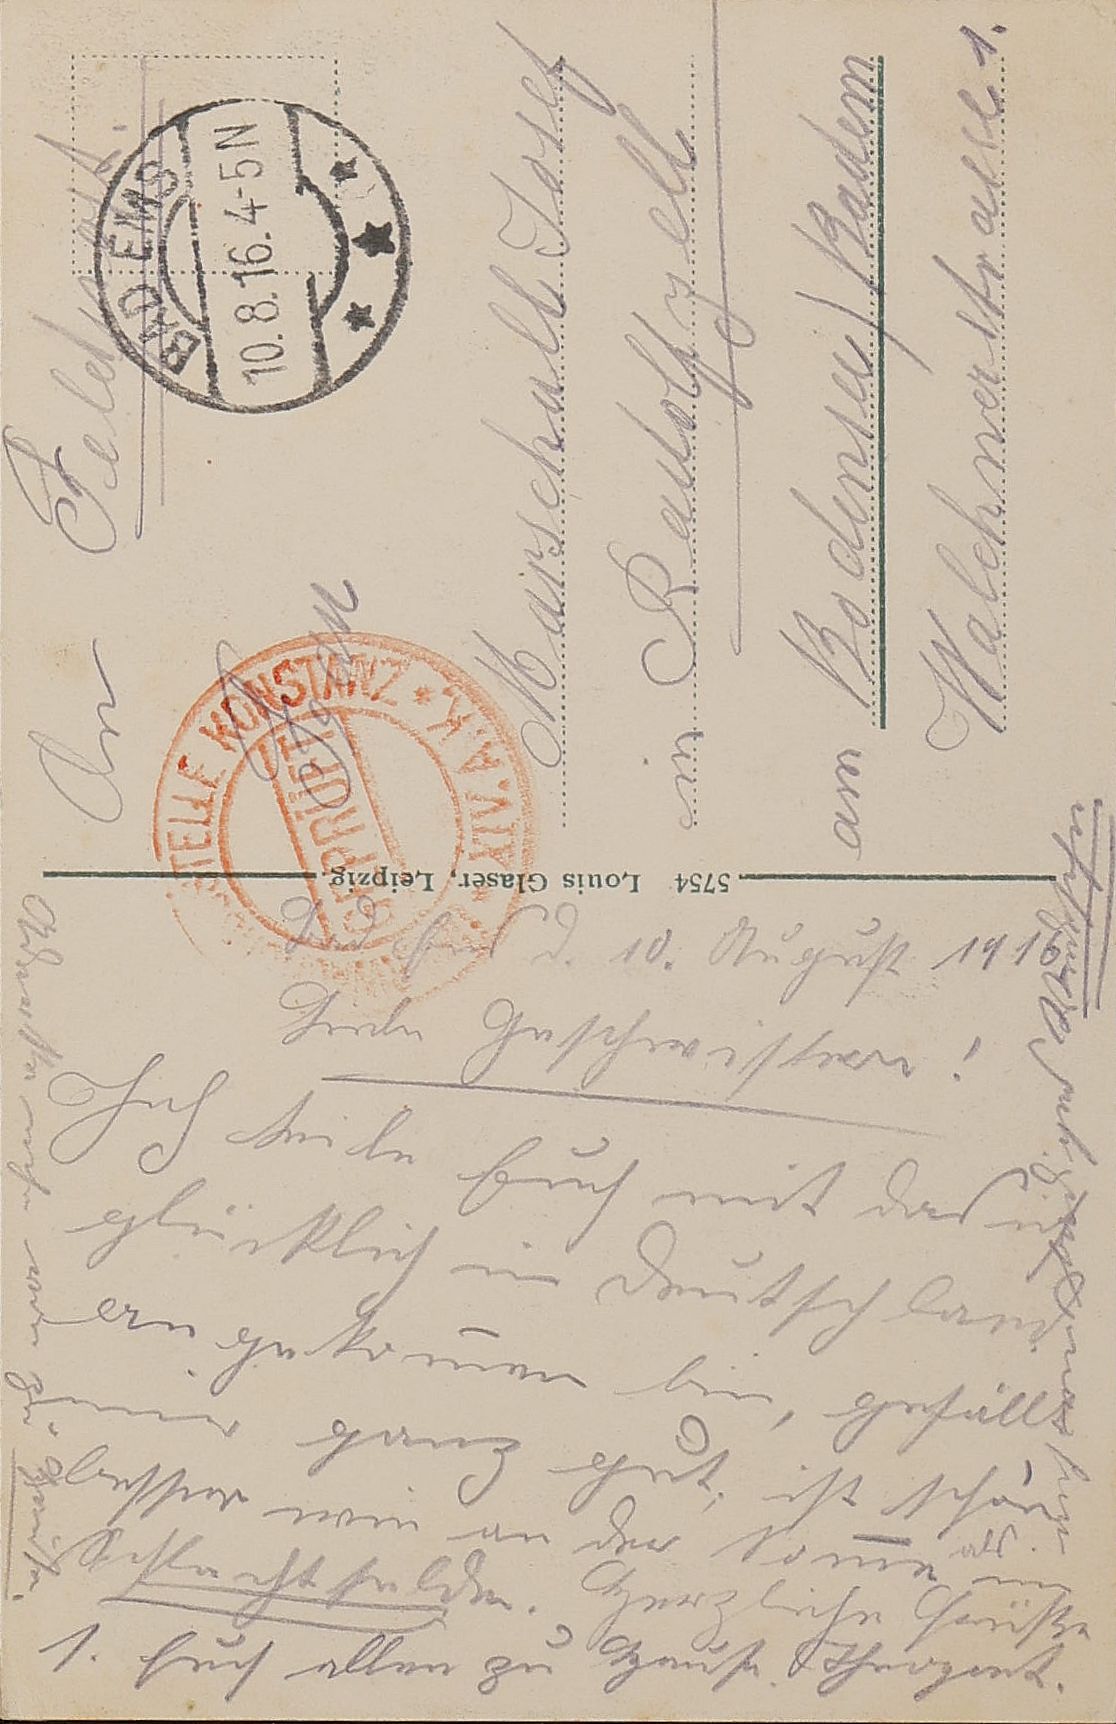 Feldpost.
BAD EMS
10.8.16. 4-5 N
An
Marschall Josef
in Radolfzell
am Bodensee / Baden
Walchnerstrasse 1.
PRÜFUNGSSTELLE KONSTANZ * XIV. A.K. *
GEPRÜFT
5754 Louis Glaser, Leipzig.
Bad Ems d. 10. August 1916
Liebe Geschwister!
Ich teile Euch mit das ich
glücklich in Deutschland
angekommen bin, gefällt
mir ganz gut, ist schön
besser wie an der Somme im
Schlachtfelde. Herzliche Grüße
Euch allen zu Hause